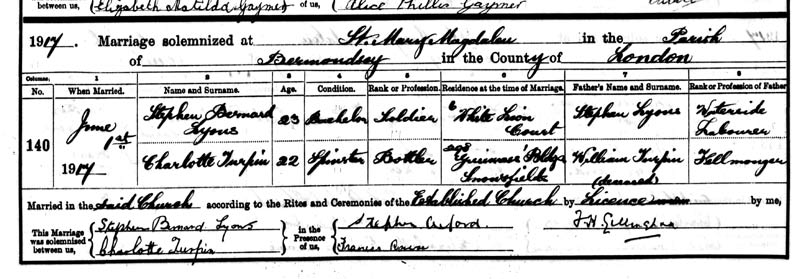 between us, Elizabeth Matilda Gaymer of us, Alice Phillis Gaymer
1917. Marriage solemnized at St. Mary Magdalen in the Parish
of Bermondsey in the County of London
Columns. 1 2 3 4 5 6 7 8
No. When Married. Name and Surname. Age. Condition. Rank or Profession. Residence at the time of Marriage. Father's Name and Surname. Rank or Profession of Father
140 June 1st 1917 Stephen Bernard Lyons 23 Bachelor Soldier 6 White Lion Court Stephen Lyons Waterside Labourer
Charlotte Turpin 22 Spinster Bottler Bldgs Snowsfields William Turpin (deceased) Fellmonger
Married in the said Church according to the Rites and Ceremonies of the Established Church by Licence by me,
This Marriage was solemnized between us, Stephen Bernard Lyons Charlotte Turpin in the Presence of us, Stephen Francis